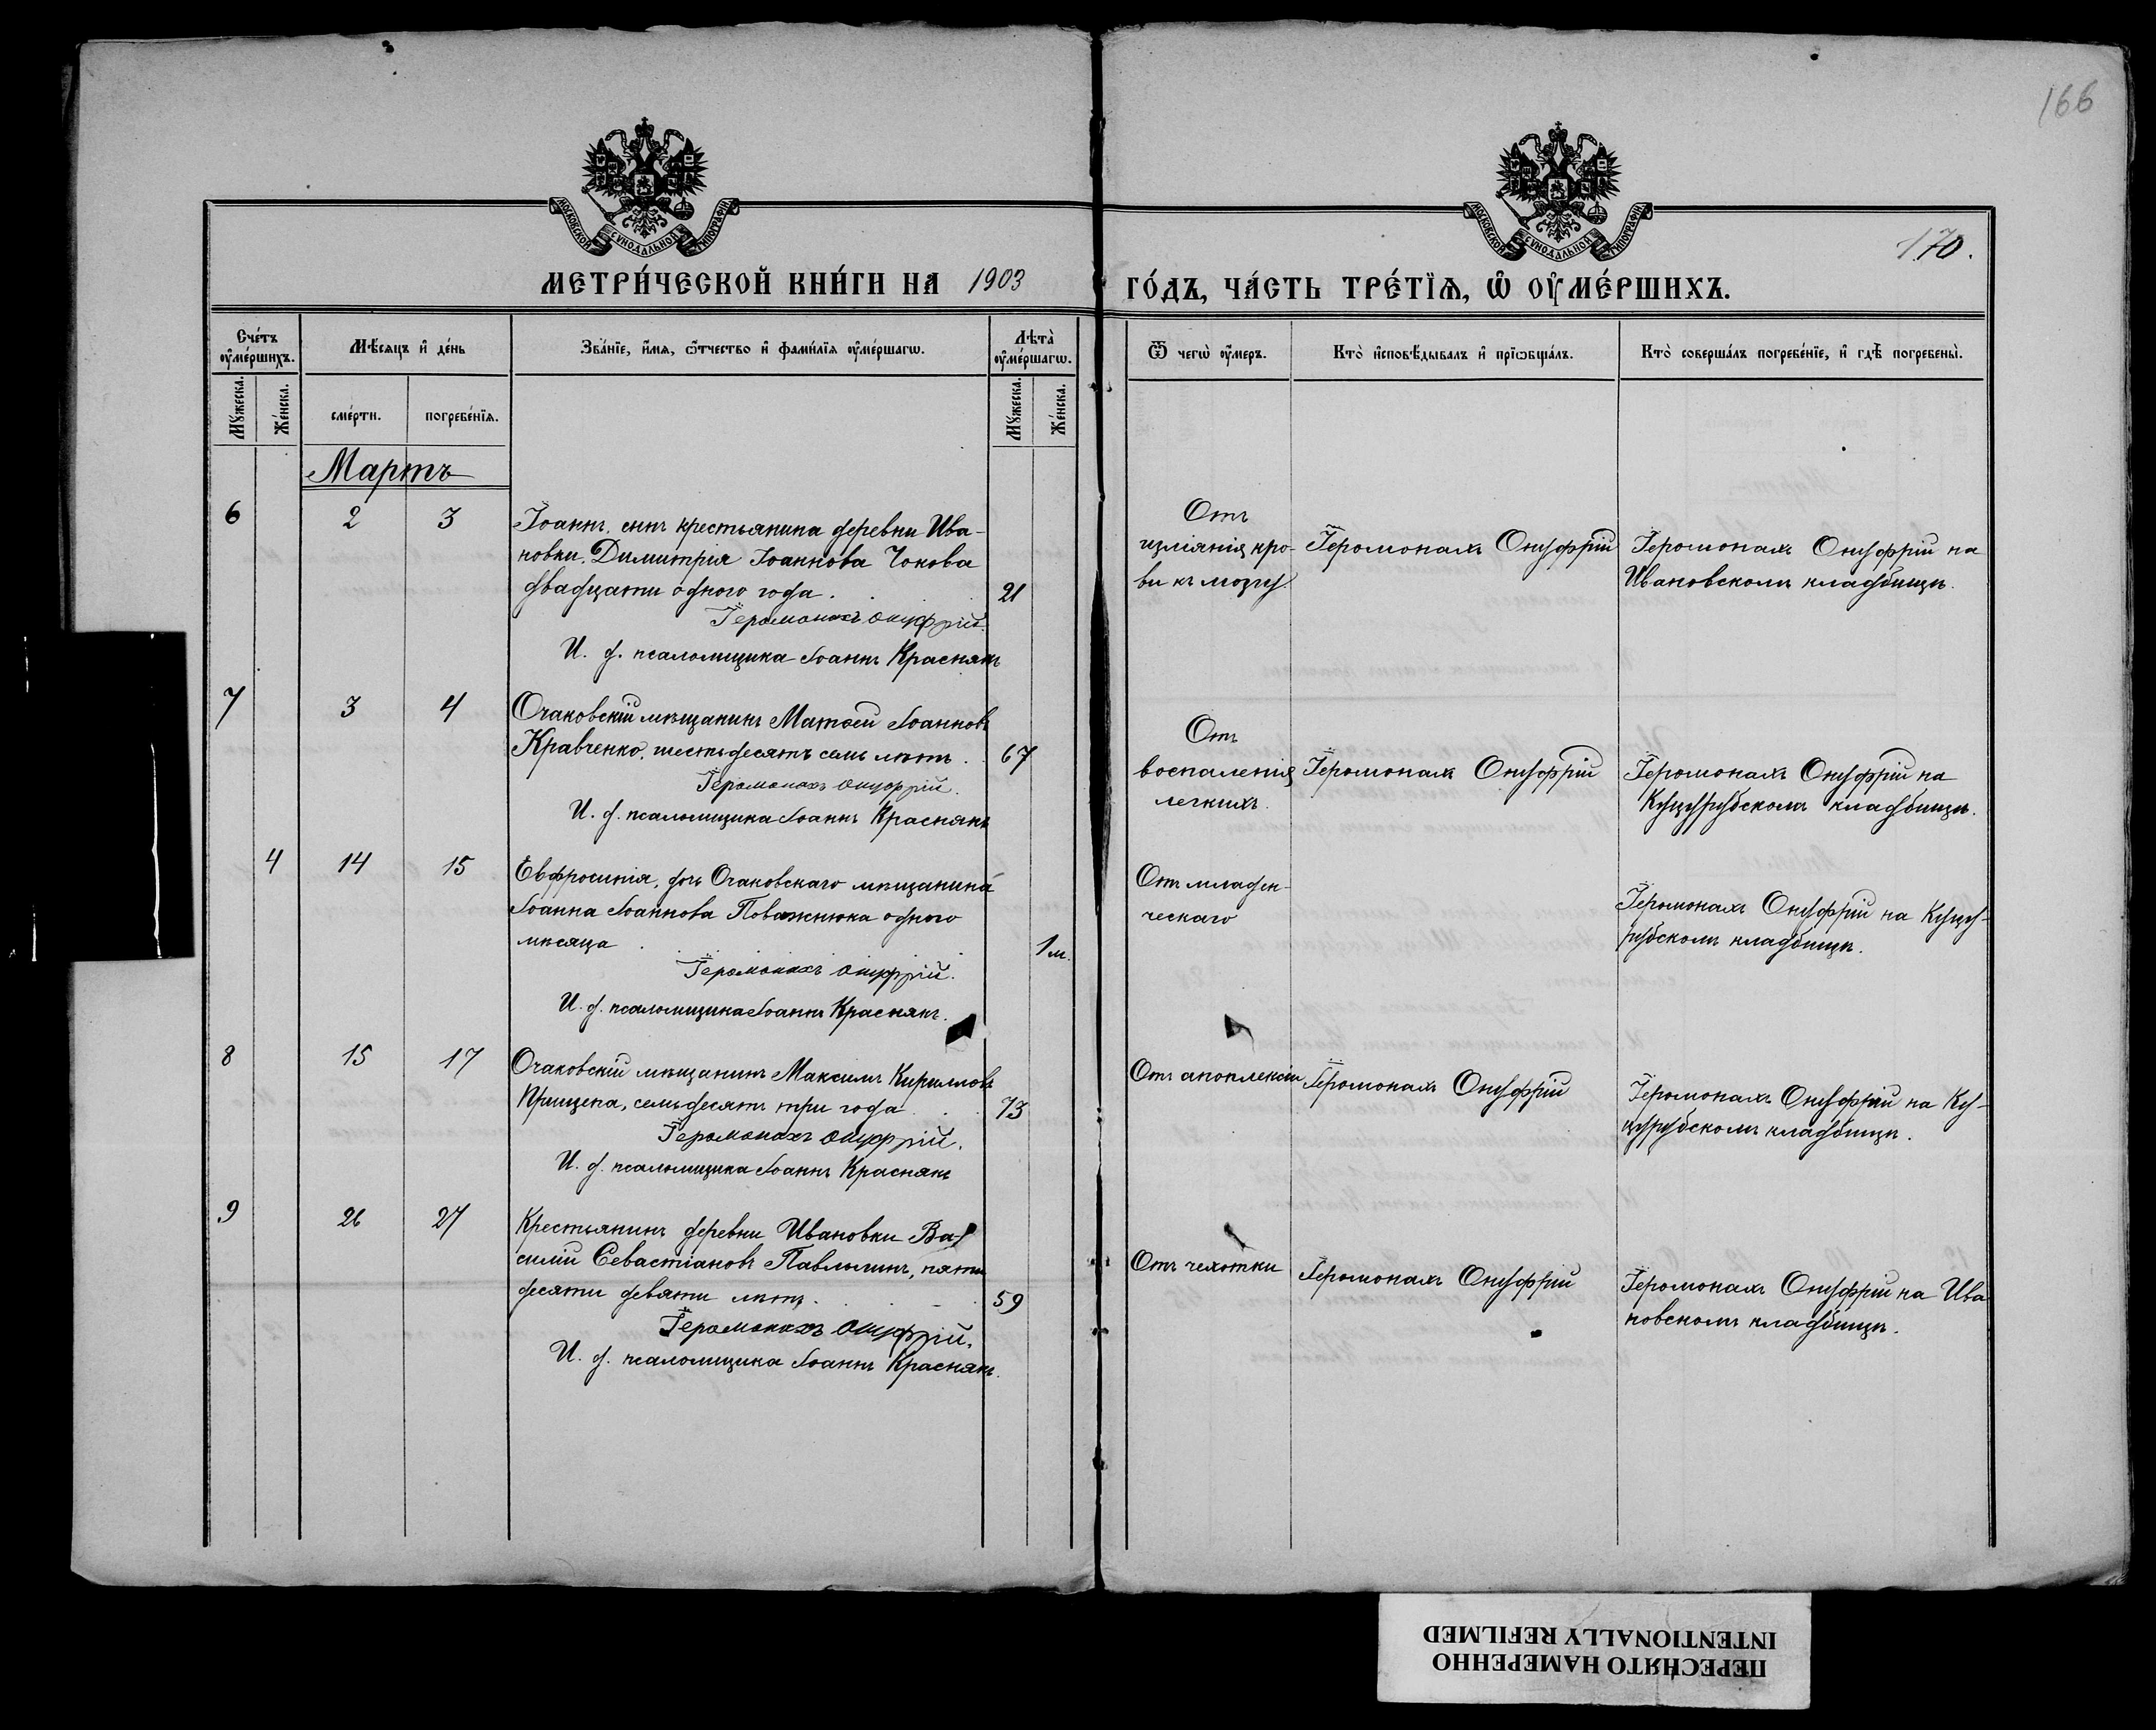 166
МОСКОВСКОЙ СѴНОДАЛЬНОЙ ТИПОГРАФІИ
МОСКОВСКОЙ СѴНОДАЛЬНОЙ ТИПОГРАФІИ
170.
МЕТРИ́ЧЕСКОЙ КНИ́ГИ НА 1903
ГО́ДЪ, ЧА́СТЬ ТРЕ́ТЇѦ, Ѡ ОУМЕ́РШИХЪ.
Сче́тъ оуме́ршихъ.
Мѣ́сяцъ и де́нь
Зва́нїе, и́мѧ, ѻ́тчество и фами́лїѧ оуме́ршагѡ.
Лѣта̀ оуме́ршагѡ.
Ѿ чегѡ̀ оу́меръ.
Кто̀ исповѣ́дывалъ и прїѡбща́лъ.
Кто̀ соверша́лъ погребе́нїе, и гдѣ̀ погребены̀.
Мꙋжеска.
Же́нска.
сме́рти.
погребе́нїѧ.
Мꙋжеска.
Же́нска.
Мартъ
6 2 3 Іоаннъ, сынъ крестьянина деревни Ива-
новки, Димитрія Іоаннова Чокова
двадцати одного года. 21
Іеромонахъ Онуфрій.
И. д. псаломщика Іоаннъ Краснякъ
Отъ
изліянія кро-
ви къ мозгу.
Іеромонахъ Онуфрій
Іеромонахъ Онуфрій на
Ивановскомъ кладбищѣ.
7 3 4 Очаковскій мѣщанинъ Матѳей Іоанновъ
Кравченко, шестьдесятъ семь лѣтъ. 67
Іеромонахъ Онуфрій.
И. д. псаломщика Іоаннъ Краснякъ
Отъ
воспаленія
легкихъ.
Іеромонахъ Онуфрій
Іеромонахъ Онуфрій на
Куцурубскомъ кладбищѣ.
4 14 15 Евфросинія, дочь Очаковскаго мѣщанина
Іоанна Іоаннова Поважнюка одного
мѣсяца 1 м.
Іеромонахъ Онуфрій.
И. д. псаломщика Іоаннъ Краснякъ.
Отъ младен-
ческаго
Іеромонахъ Онуфрій на Куцу-
рубскомъ кладбищѣ.
8 15 17 Очаковскій мѣщанинъ Максимъ Кирилловъ
Прищепа, семьдесятъ три года 73
Іеромонахъ Онуфрій.
И. д. псаломщика Іоаннъ Краснякъ
Отъ апоплексіи
Іеромонахъ Онуфрій
Іеромонахъ Онуфрій на Ку-
цурубскомъ кладбищѣ.
9 26 27 Крестьянинъ деревни Ивановки Ва-
силій Севастіановъ Павлычинъ, пяти
десяти девяти лѣтъ. 59
Іеромонахъ Онуфрій.
И. д. псаломщика Іоаннъ Краснякъ.
Отъ чахотки
Іеромонахъ Онуфрій
Іеромонахъ Онуфрій на Ива
новскомъ кладбищѣ.
ПЕРЕСНЯТО НАМЕРЕННО
INTENTIONALLY REFILMED